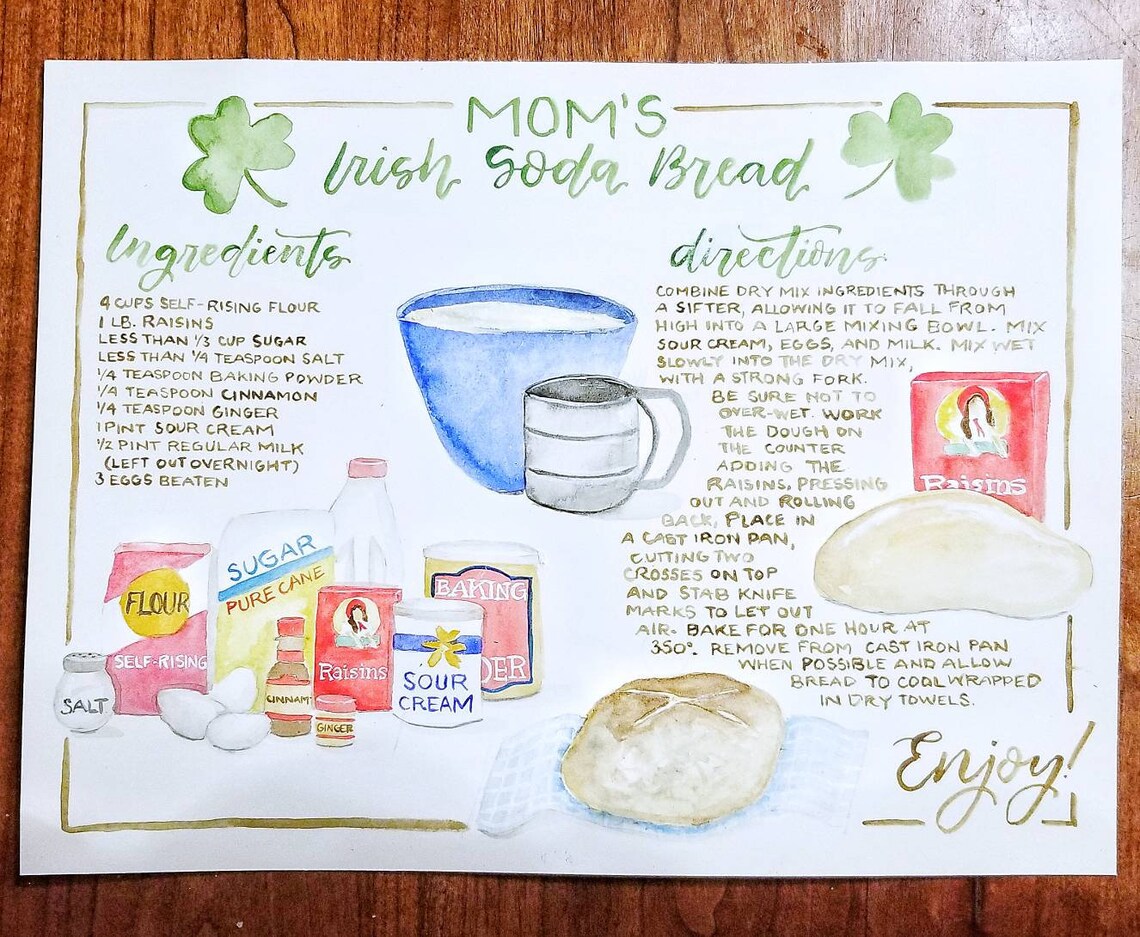 MOM'S
Irish Soda Bread
Ingredients
4 CUPS SELF-RISING FLOUR
1 LB. RAISINS
LESS THAN 1/3 CUP SUGAR
LESS THAN 1/4 TEASPOON SALT
1/4 TEASPOON BAKING POWDER
1/4 TEASPOON CINNAMON
1/4 TEASPOON GINGER
1 PINT SOUR CREAM
1/2 PINT REGULAR MILK
(LEFT OUT OVERNIGHT)
3 EGGS BEATEN
directions
COMBINE DRY MIX INGREDIENTS THROUGH
A SIFTER, ALLOWING IT TO FALL FROM
HIGH INTO A LARGE MIXING BOWL. MIX
SOUR CREAM, EGGS, AND MILK. MIX WET
SLOWLY INTO THE DRY MIX,
WITH A STRONG FORK.
BE SURE NOT TO
OVER-WET. WORK
THE DOUGH ON
THE COUNTER
ADDING THE
RAISINS, PRESSING
OUT AND ROLLING
BACK, PLACE IN
A CAST IRON PAN,
CUTTING TWO
CROSSES ON TOP
AND STAB KNIFE
MARKS TO LET OUT
AIR. BAKE FOR ONE HOUR AT
350°. REMOVE FROM CAST IRON PAN
WHEN POSSIBLE AND ALLOW
BREAD TO COOL WRAPPED
IN DRY TOWELS.
Raisins
FLOUR
SELF-RISING
SUGAR
PURE CANE
SALT
CINNAM
GINGER
Raisins
SOUR
CREAM
BAKING
DER
Enjoy!